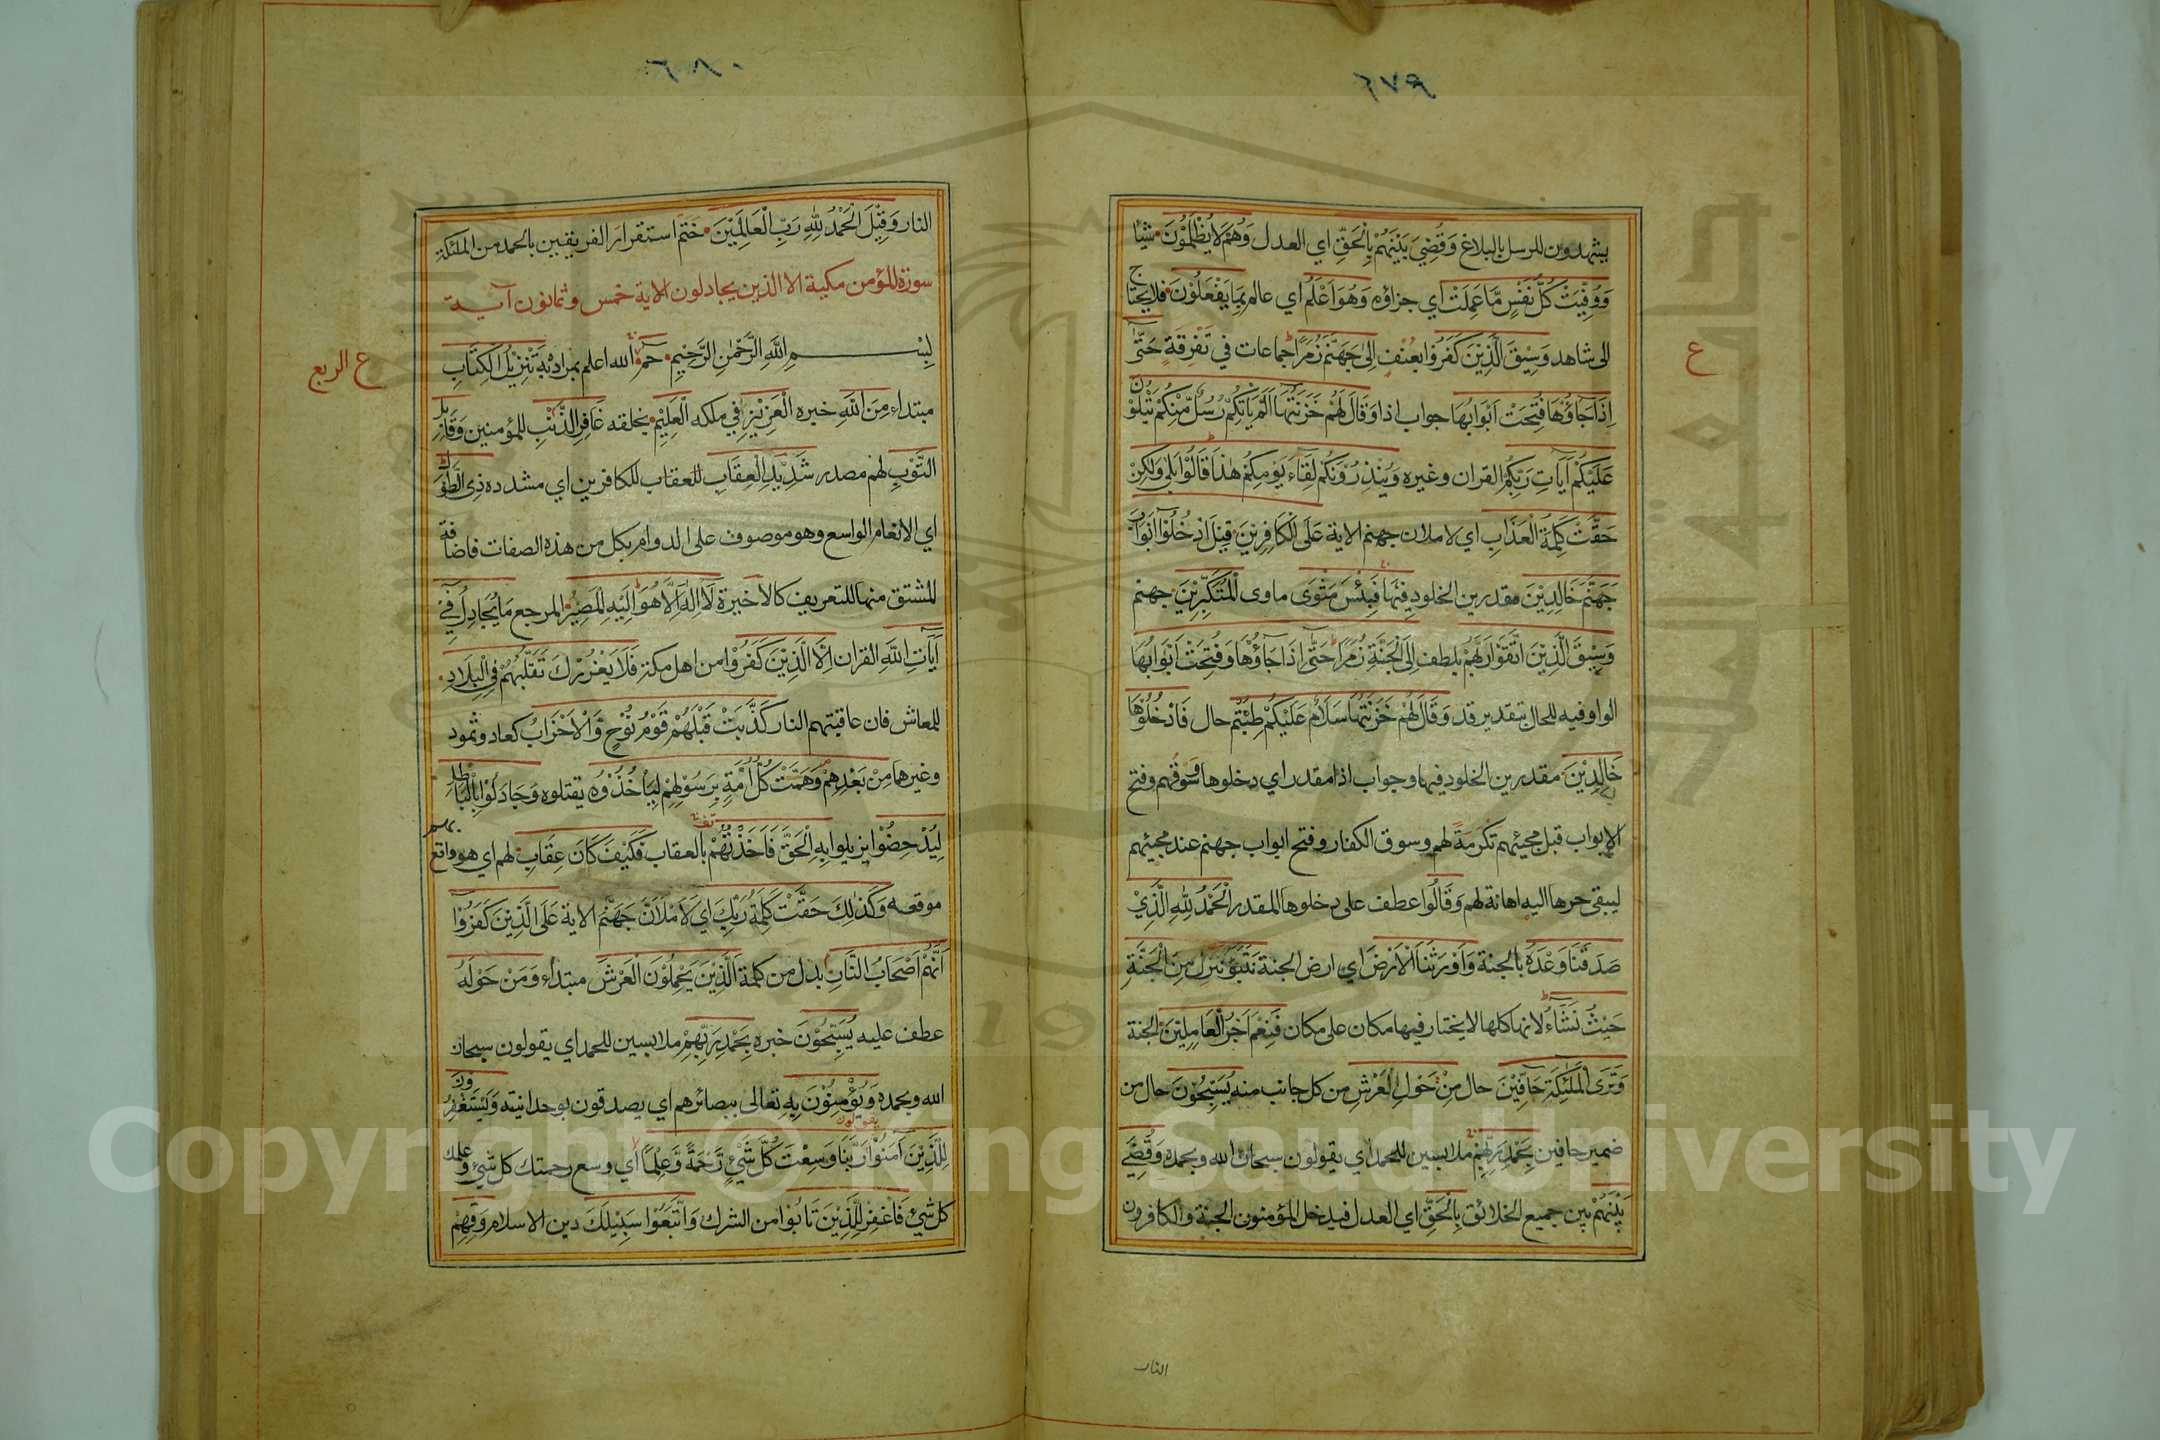 ٦٧٩
يشهدون للرسل بالبلاغ وَقُضِيَ بَيْنَهُمْ بِالْحَقِّ اي العدل وَهُمْ لَايُظْلَمُوْنَ شيأ
وَوُفِّيَتْ كُلُّ نَفْسٍ مَّا عَمِلَتْ اي جزاؤه وَهُوَ اَعْلَمُ اي عالم بِمَا يَفْعَلُوْنَ فلا يحتاج
الى شاهد وَسِيْقَ الَّذِيْنَ كَفَرُوْا بعنف اِلىٰ جَهَنَّمَ زُمَرًا جماعات في تفرقة حَتّٰى
اِذَا جَاؤُهَا فُتِحَتْ اَبْوَابُهَا جواب اذا وَقَالَ لَهُمْ خَزَنَتُهَا اَلَمْ يَاْتِكُمْ رُسُلٌ مِّنْكُمْ يَتْلُوْنَ
عَلَيْكُمْ اٰيَاتِ رَبِّكُمْ القران وغيره وَيُنْذِرُوْنَكُمْ لِقَاءَ يَوْمِكُمْ هٰذَا قَالُوْا بَلىٰ وَلكِنْ
حَقَّتْ كَلِمَةُ الْعَذَابِ اي لاملان جهنم الاية عَلَى الْكَافِرِيْنَ قِيْلَ ادْخُلُوْا اَبْوَابَ
جَهَنَّمَ خَالِدِيْنَ مقدرين الخلود فِيْهَا فَبِئْسَ مَثْوَى ماوى الْمُتَكَبِّرِيْنَ جهنم
وَسِيْقَ الَّذِيْنَ اتَّقَوْا رَبَّهُمْ بلطف اِلَى الْجَنَّةِ زُمَرًا حَتّٰى اِذَا جَاؤُهَا وَفُتِحَتْ اَبْوَابُهَا
الواو فيه للحال بتقدير قد وَقَالَ لَهُمْ خَزَنَتُهَا سَلَامٌ عَلَيْكُمْ طِبْتُمْ حال فَادْخُلُوْهَا
خَالِدِيْنَ مقدرين الخلود فيها وجواب اذا مقدر اي دخلوها وسوقهم وفتح
الابواب قبل مجيئهم تكرمة لهم وسوق الكفار وفتح ابواب جهنم عند مجيئهم
ليبقى حرها اليه اهانة لهم وَقَالُوا عطف على دخلوها المقدر الْحَمْدُ لِلّٰهِ الَّذِيْ
صَدَقَنَا وَعْدَهُ بالجنة وَاَوْرَثَنَا الْاَرْضَ اي ارض الجنة نَتَبَوَّأُ ننزل مِنَ الْجَنَّةِ
حَيْثُ نَشَاءُ لانها كلها لا يختار فيها مكان على مكان فَنِعْمَ اَجْرُ الْعَامِلِيْنَ الجنة
وَتَرَى الْمَلٰئِكَةَ حَافِّيْنَ حال مِنْ حَوْلِ الْعَرْشِ من كل جانب منه يُسَبِّحُوْنَ حال من
ضمير حافين بِحَمْدِ رَبِّهِمْ ملابسين للحمد اي يقولون سبحان الله وبحمده وَقُضِيَ
بَيْنَهُمْ بين جميع الخلائق بِالْحَقِّ اي العدل فيدخل المؤمنون الجنة والكافرون
النار
ع
٦٨٠
النار وَقِيْلَ الْحَمْدُ لِلّٰهِ رَبِّ الْعَالَمِيْنَ ختم استقرار الفريقين بالحمد من الملئكة
سورة المؤمن مكية الا الذين يجادلون الاية خمس وثمانون آية
بِسْمِ اللهِ الرَّحْمٰنِ الرَّحِيْمِ حٰمٓ الله اعلم بمراده به تَنْزِيْلُ الْكِتَابِ
مبتداء مِنَ اللهِ خبره الْعَزِيْزِ في ملكه الْعَلِيْمِ بخلقه غَافِرِ الذَّنْبِ للمؤمنين وَقَابِلِ
التَّوْبِ لهم مصدر شَدِيْدِ الْعِقَابِ للكافرين اي مشدده ذِى الطَّوْلِ
اي الانعام الواسع وهو موصوف على الدوام بكل من هذه الصفات فاضافة
المشتق منها للتعريف كالاخيرة لَا اِلٰهَ اِلَّا هُوَ اِلَيْهِ الْمَصِيْرُ المرجع مَا يُجَادِلُ فِيْ
اٰيَاتِ اللهِ القران اِلَّا الَّذِيْنَ كَفَرُوْا من اهل مكة فَلَا يَغْرُرْكَ تَقَلُّبُهُمْ فِي الْبِلَادِ
للمعاش فان عاقبتهم النار كَذَّبَتْ قَبْلَهُمْ قَوْمُ نُوْحٍ وَالْاَحْزَابُ كعاد وثمود
وغيرهما مِنْ بَعْدِهِمْ وَهَمَّتْ كُلُّ اُمَّةٍ بِرَسُوْلِهِمْ لِيَاْخُذُوْهُ يقتلوه وَجَادَلُوْا بِالْبَاطِلِ
لِيُدْحِضُوْا يزيلوا بِهِ الْحَقَّ فَاَخَذْتُهُمْ بالعقاب فَكَيْفَ كَانَ عِقَابِ لهم اي هو واقع
موقعه وَكَذٰلِكَ حَقَّتْ كَلِمَةُ رَبِّكَ اي لَاَمْلَاَنَّ جَهَنَّمَ الاية عَلَى الَّذِيْنَ كَفَرُوْا
اَنَّهُمْ اَصْحَابُ النَّارِ بدل من كلمة اَلَّذِيْنَ يَحْمِلُوْنَ الْعَرْشَ مبتداء وَمَنْ حَوْلَهُ
عطف عليه يُسَبِّحُوْنَ خبره بِحَمْدِ رَبِّهِمْ ملابسين للحمد اي يقولون سبحان
الله وبحمده وَيُؤْمِنُوْنَ بِهِ تعالى ببصائرهم اي يصدقون بوحدانيته وَيَسْتَغْفِرُوْنَ
لِلَّذِيْنَ اٰمَنُوْا رَبَّنَا وَسِعْتَ كُلَّ شَيْءٍ رَّحْمَةً وَّعِلْمًا اي وسع رحمتك كل شيء وعلمك
كل شيء فَاغْفِرْ لِلَّذِيْنَ تَابُوْا من الشرك وَاتَّبَعُوْا سَبِيْلَكَ دين الاسلام وَقِهِمْ
ع الربع
Copyright © King Saud University